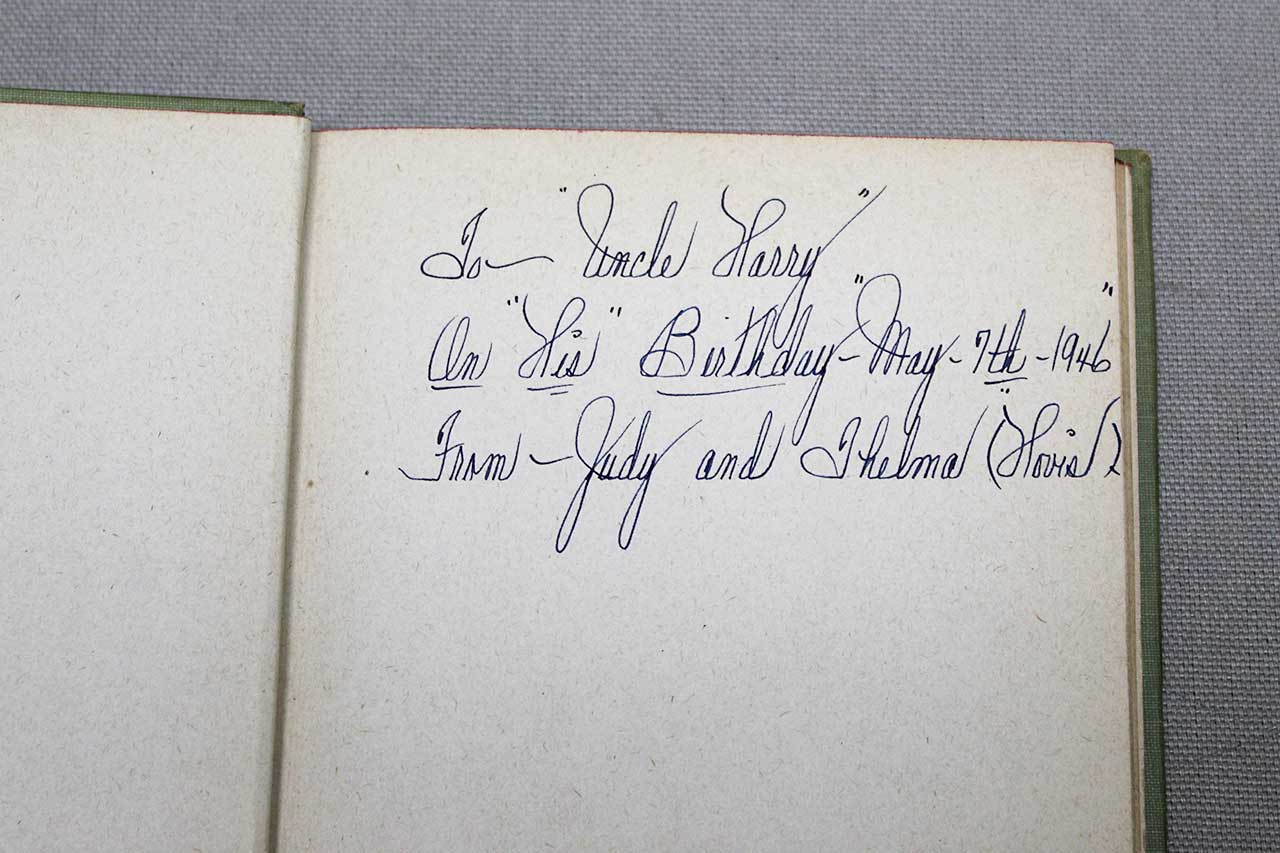 To — "Uncle Harry"
On "His" Birthday — "May - 7th - 1946"
From — Judy and Thelma ("Hovis")